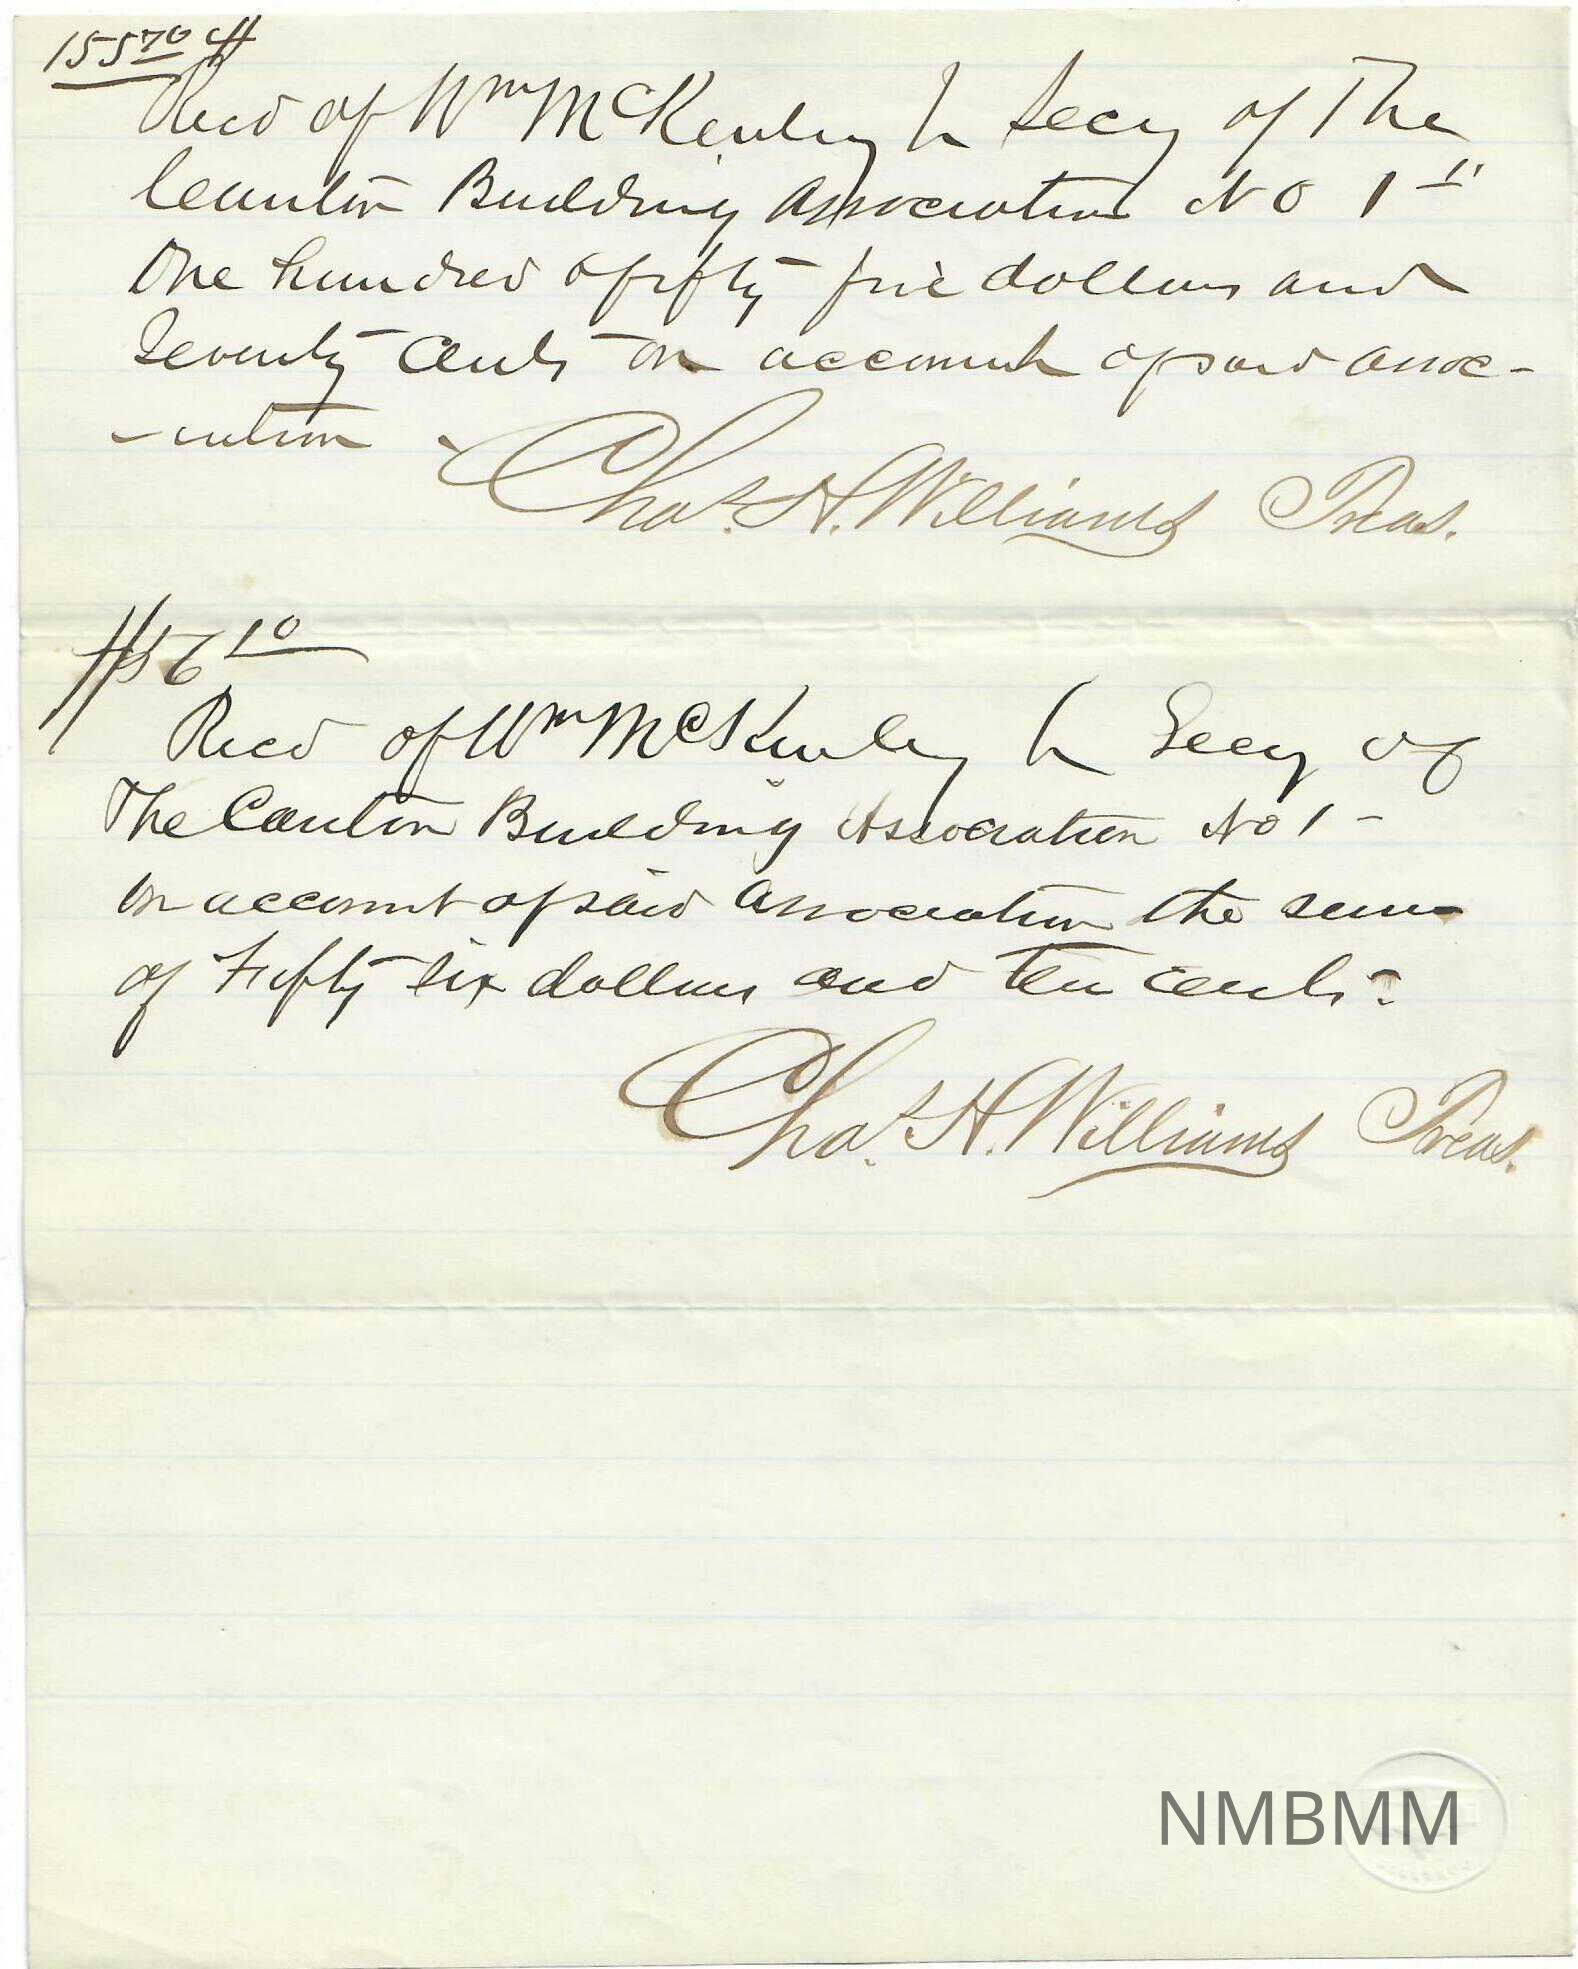 155 70 cts
Recd of Wm McKinley Jr Secy of The
Canton Building Association No 1 "
One hundred & fifty five dollars and
Seventy Cents on account of said assoc-
-iation.
Chas. H. Williams Treas.
$56 10
Recd of Wm McKinley Jr Secy of
The Canton Building Association No 1 -
on account of said association the sum
of Fifty six dollars and Ten cents.
Chas. H. Williams Treas.
NMBMM